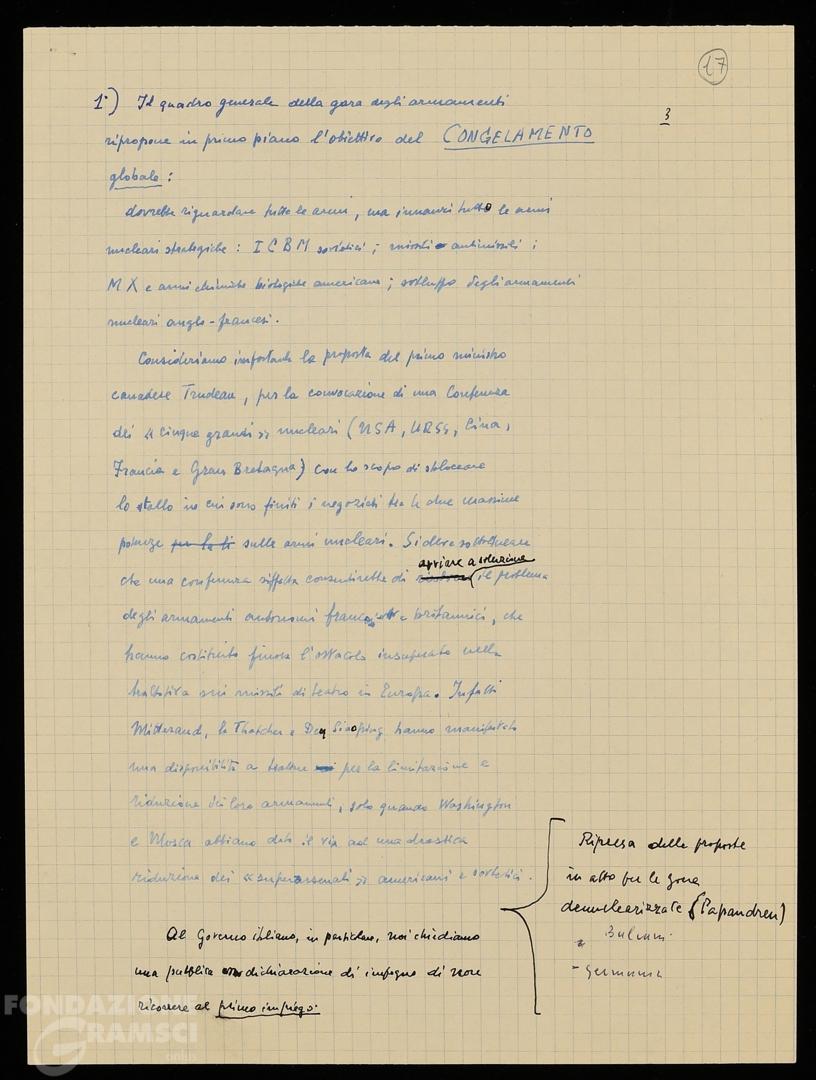 17
3
1°) Il quadro generale della gara degli armamenti
ripropone in primo piano l'obiettivo del CONGELAMENTO
globale :
dovrebbe riguardare tutte le armi, ma innanzi tutto le armi
nucleari strategiche : ICBM sovietici ; missili antimissili ;
MX e armi chimiche biologiche americane ; sviluppo degli armamenti
nucleari anglo-francesi.
Consideriamo importante la proposta del primo ministro
canadese Trudeau, per la convocazione di una Conferenza
dei « cinque grandi » nucleari (USA, URSS, Cina,
Francia e Gran Bretagna) con lo scopo di sbloccare
lo stallo in cui sono finiti i negoziati tra le due massime
potenze per la li sulle armi nucleari. Si deve sottolineare
avviare a soluzione
che una conferenza siffatta consentirebbe di il problema
degli armamenti autonomi francesi e britannici, che
hanno costituito finora l'ostacolo insuperato nella
trattativa sui missili di teatro in Europa. Infatti
Mitterand, la Thatcher e Deng Siaoping hanno manifestato
una disponibilità a trattare per la limitazione e
riduzione dei loro armamenti, solo quando Washington
e Mosca abbiano dato il via ad una drastica
riduzione dei « superarsenali » americani e sovietici.
Al Governo italiano, in particolare, noi chiediamo
una pubblica dichiarazione di impegno di non
ricorrere al primo impiego.
Ripresa delle proposte
in atto per le zone
denuclearizzate (Papandreu)
Balcani
- Germania
FONDAZIONE
GRAMSCI
onlus